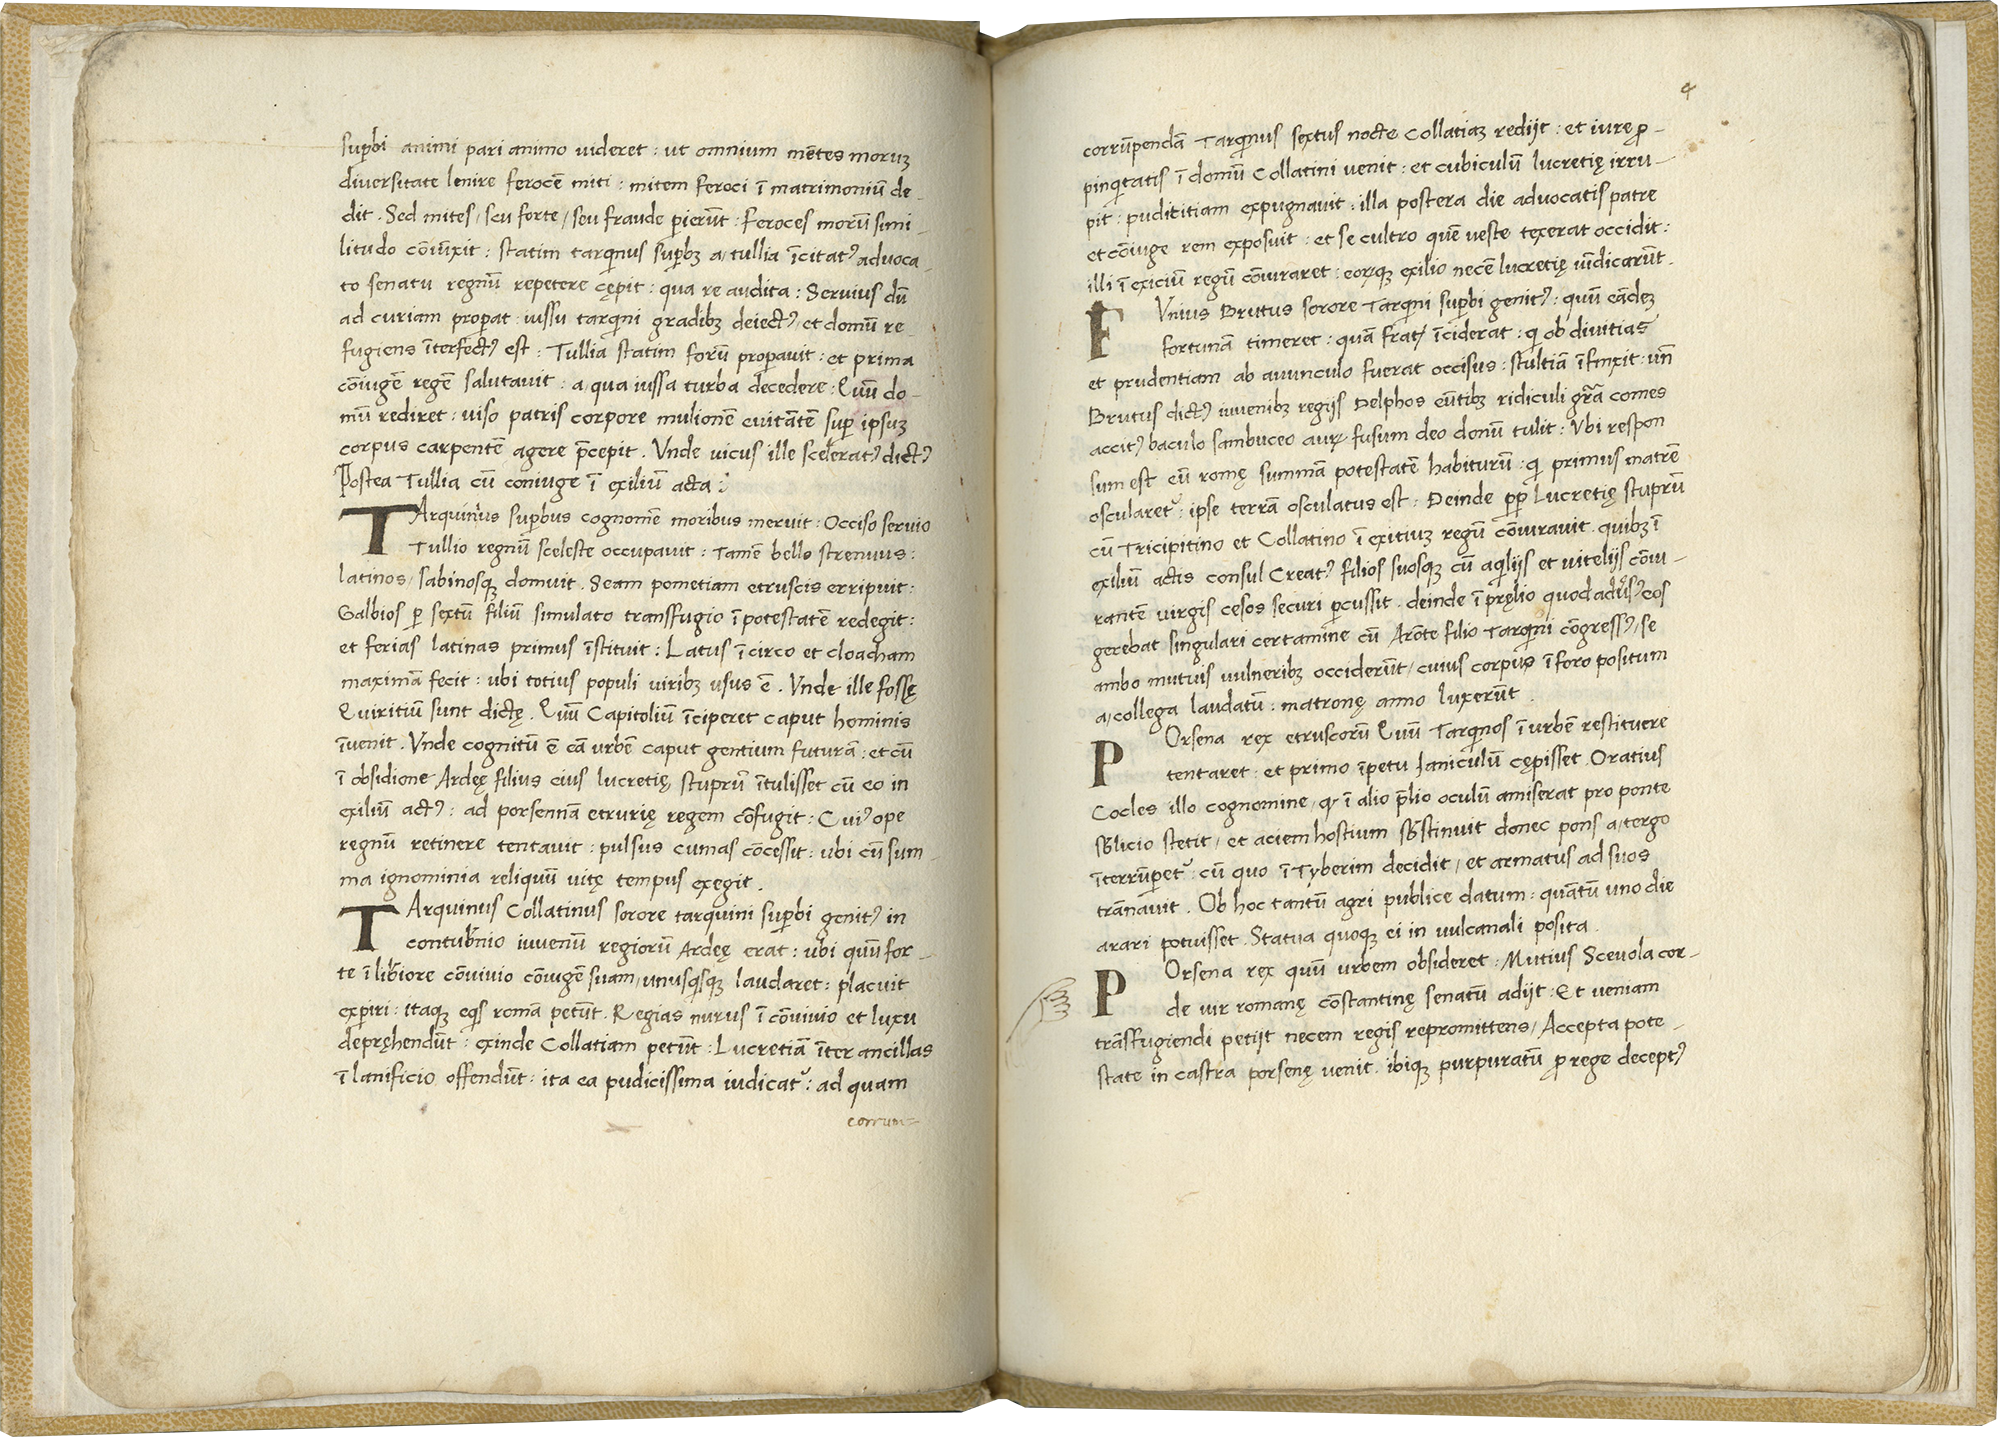 suꝑbi animi pari animo uideret : ut omnium mētes moruꝫ
diversitate lenire ferocē miti : mitem feroci ī matrimoniū de-
dit . Sed mites / seu forte / seu fraude ꝑierūt : Feroces morū simi-
litudo cōiūxit : statim tarqinus suꝑbꝫ a / tullia īcitatꝰ advoca-
to senatu regnū repetere cępit : qua re audita : Servius dū
ad curiam proꝑat iussu tarqini gradibꝫ deiectꝰ et domū re-
fugiens īterfectꝰ est : Tullia statim forū proꝑavit : et prima
cōiugē regē salutauit : a / qua iussa turba dēcedere : Quū do-
mū rediret : uiso patris corpore mulionē euitātē suꝑ ipsuꝫ
corpus carpentē agere p̄cepit . Vnde uicus ille sceleratꝰ dictꝰ
Postea Tullia cū coniuge ī exiliū acta :
TArquinius suꝑbus cognomē moribus meruit : Occiso servio
Tullio regnū sceleste occupavit : Tamē bello strenuus :
latinos / sabinosqꝫ domuit . Seam pometiam etruscis erripuit :
Galbios ꝑ sextū filiū simulato transfugio ī potestatē redegit :
et ferias latinas primus īstituit : Latus ī circo et cloacham
maximā fecit : ubi totius populi viribꝫ usus ē . Vnde ille fossę
Quiritiū sunt dictę . Quū Capitoliū īciperet caput hominis
īuenit . Vnde cognitū ē eā urbē caput gentium futurā : et cū
ī obsidione Ardeę filius eius lucretię stuprū ītulisset cū eo in
exiliū actꝰ : ad porsennā etrurię regem cōfugit : Cuiꝰ ope
regnū retinere tentauit : pulsus cumas cōcessit : ubi cū sum-
ma ignominia reliquū uitę tempus exegit .
TArquinus Collatinus sorore tarquini suꝑbi genitꝰ in
contub̄nio iuuenū regiorū Ardeę erat : ubi quū for-
te ī lib̄iore cōuiuio cōiugē suam / unusqisqꝫ laudaret : placuit
exꝑiri : itaqꝫ eqis romā petūt . Regias nurus ī cōuiuio et luxu
depręhendūt : exinde Collatiam petūt : Lucretiā īter ancillas
ī lanificio offendūt : ita ea pudicissima iudicatᷣ : ad quam
corrum=
4
corrūpendā Tarqinus sextus nocte Collatiaꝫ redijt : et iure ꝓ-
pinqitatis ī domū Collatini uenit : et cubiculū lucretię irru-
pit : pudititiam expugnauit : illa postera die aduocatis patre
et cōiuge rem exposuit : et se cultro quē ueste texerat occidit :
illi ī exiciū regū cōiuraret : eorꝝqꝫ exilio necē lucretię uīdicarūt .
Vnius Brutus sorore Tarqini suꝑbi genitꝰ : quū eādeꝫ
fortunā timeret : quā fratꝝ īciderat : qi ob diuitias
et prudentiam ab auunculo fuerat occisus : stultiā īfinxit : un̄
Brutus dictꝰ iuuenibꝫ regijs Delphos eūtibꝫ ridiculi gr̄a comes
accitꝰ baculo sambuceo auꝝ fusum deo donū tulit : Vbi respon
sum est eū romę summā potestatē habiturū : qi primus matrē
oscularetᷣ : ipse terrā osculatus est : Deinde ꝑꝑ Lucretię stuprū
cū Tricipitino et Collatino ī exitiuꝫ regū cōiurauit . quibꝫ ī
exiliū actis consul Creatꝰ filios suosqꝫ cū aqilijs et uitelijs cōiu-
rantē virgis cesos securi ꝑcussit . deinde ī pręlio quod adūsꝰ eos
gerebat singulari certamine cū Arōte filio Tarqini cōgressꝰ / se
ambo mutuis uulneribꝫ occiderūt / cuius corpus ī foro positum
a / collega laudatū : matronę anno luxerūt .
POrsena rex etruscorū Quū Tarqinos ī urbē restituere
tentaret : et primo īpetu Janiculū cępisset . Oratius
Cocles illo cognomine / qꝛ ī alio p̄lio oculū amiserat pro ponte
sb̄licio stetit / et aciem hostium sb̄stinuit donec pons a / tergo
īterrūꝑetᷣ : cū quo ī Tyberim decidit / et armatus ad suos
trānauit . Ob hoc tantū agri publice datum : quātū uno die
arari potuisset . Statua quoqꝫ ei in uulcanali posita .
POrsena rex quū urbem obsideret : Mutius Sceuola cor-
de uir romanę cōstantinę senatū adijt : Et ueniam
trāsfugiendi petijt necem regis repromittens / Accepta pote-
state in castra porsenę uenit . ibiqꝫ purpuratū ꝓ rege deceptꝰ